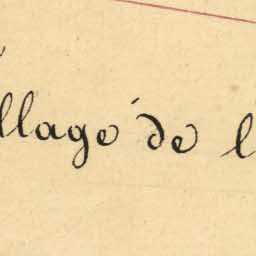 llage de l